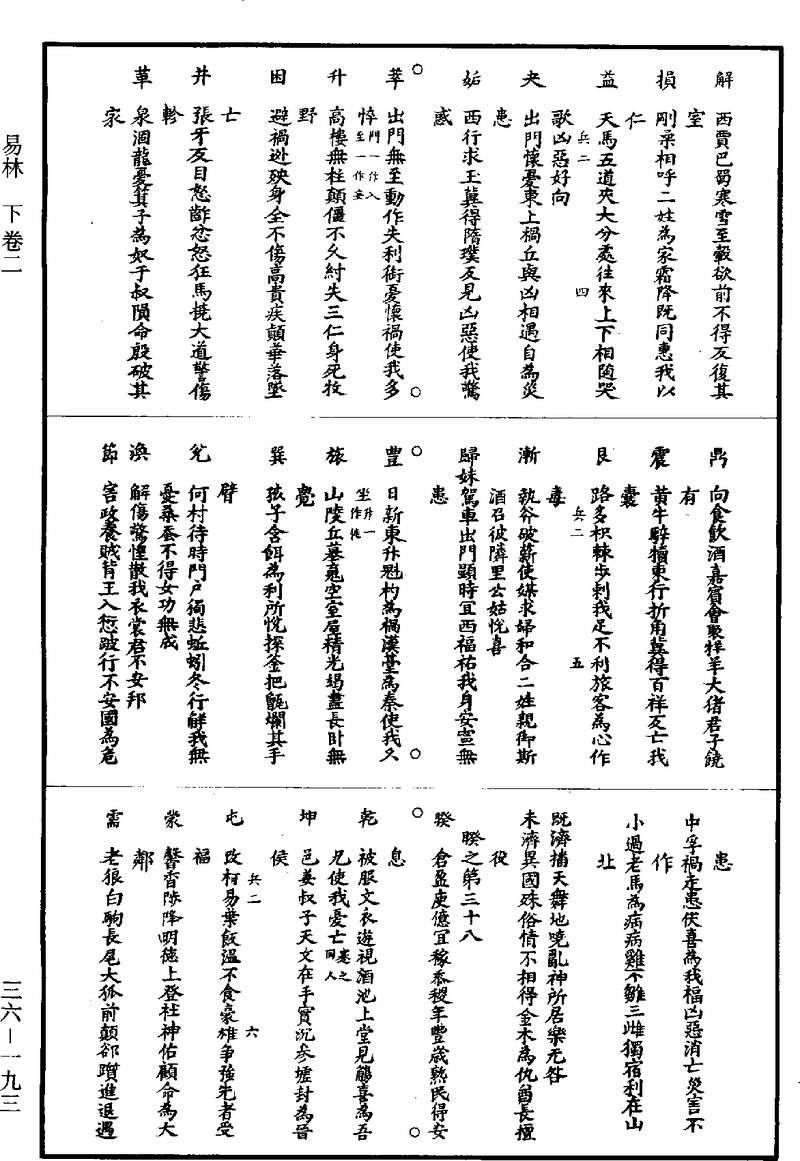 解　西賈巴蜀寒雪至轂欲前不得反復其
室
損　剛柔相呼二姓為家霜降既同惠我以
仁
益　天馬五道夾大分處往來上下相隨哭
歌凶惡好向
兵二　四
夬　出門懷憂東上禍丘與凶相遇自為災
患
姤　西行求玉冀得隋璞反見凶惡使我驚
惑
萃　出門無至動作失利銜憂懷禍使我多
悴門一作入至一作妄
升　高樓無柱顛僵不久紂失三仁身死牧
野
困　避禍逊殃身全不傷高貴疾顛華落墜
亡
井　張牙反目怒齚忿怒狂馬撓大道驚傷
軫
革　泉涸龍憂箕子為奴于叔隕命殷破其
家
鼎　向食飲酒嘉賓會聚牂羊大猪君子饒
有
震　黃牛騂犢東行折角冀得百祥反亡我
囊
艮　路多枳棘步刺我足不利旅客為心作
毒
兵二　五
漸　執斧破薪使媒求婦和合二姓親御斯
酒召彼隣里公姑悅喜
歸妹　駕車出門顯時宜西福祐我身安寍無
患
豐　日新東升魁杓為禍漢臺為秦使我久
坐升一作徙
旅　山陵丘墓䰟空室屋精光竭盡長卧無
覺
巽　孩子含餌為利所悅探釜把甑爛其手
臂
兌　何村待時門戶獨悲蚯蚓冬行解我無
憂桑蚕不得女功無成
渙　解傷驚惶散我衣裳君不安邦
節　害政養賊背主入愆跛行不安國為危
患
中孚　禍走患伏喜為我福凶惡消亡災害不
作
小過　老馬為病病雞不雛三雌獨宿利在山
北
既濟　捕天舞地曉亂神所居樂无咎
未濟　異國殊俗情不相得金木為仇酋長擅
役
睽之第三十八
睽　倉盈庾億宜稼黍稷年豐歲熟民得安
息
乾　被服文衣遊視酒池上堂見觴喜為吾
兄使我憂亡蹇之同人
坤　邑姜叔子天文在手實沉參墟封為晉
侯
兵二　六
屯　改柯易葉飯溫不食豪雄爭強先者受
福
蒙　馨香陟降明德上登社神佑顧命為大
鄰
需　老狼白駒長尾大狐前顛卻躓進退遇
易林　下卷二
三六－一九三